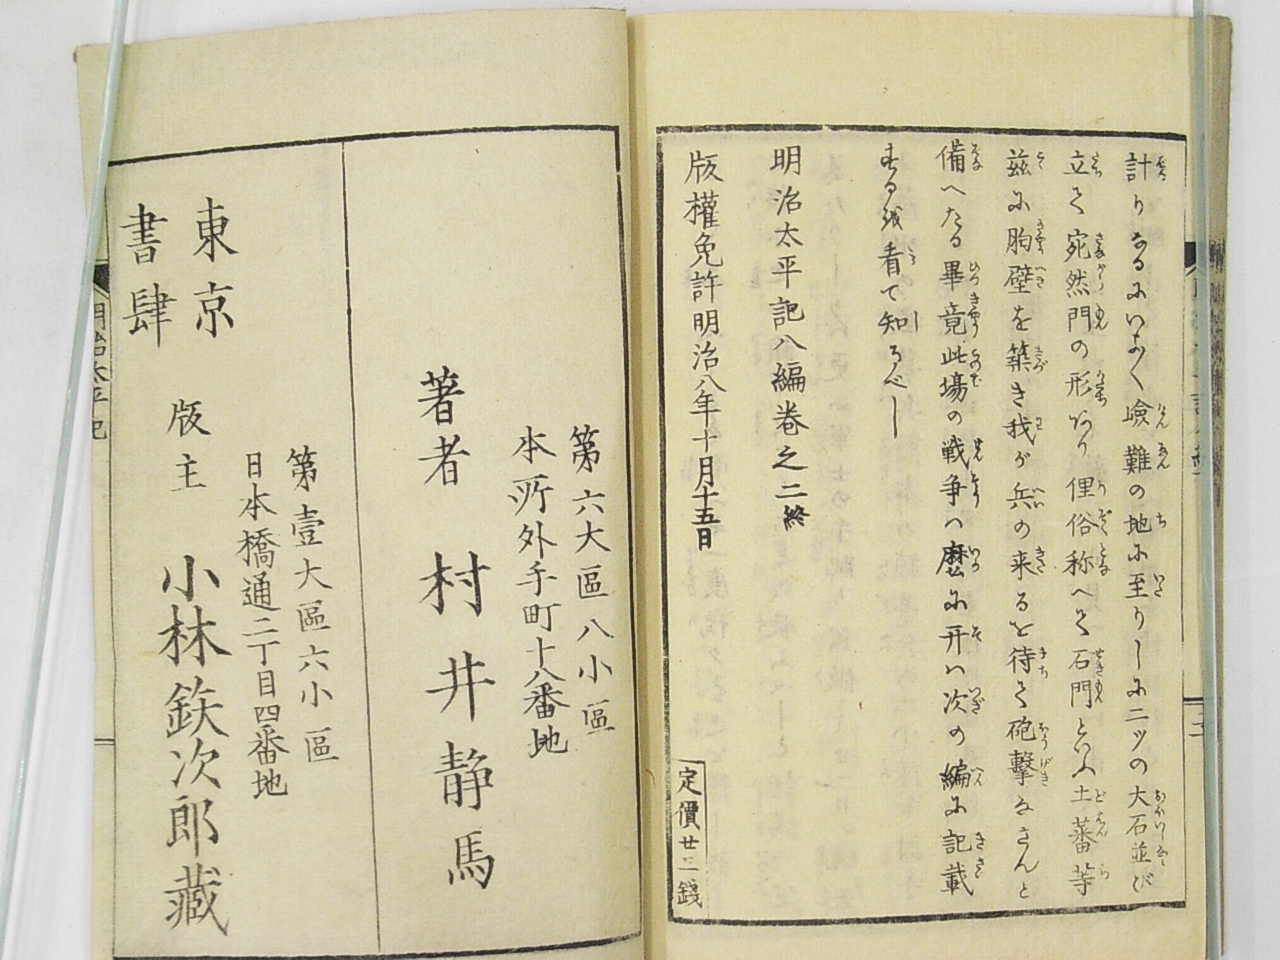 計りなるにいよ〱嶮難の地に至りしに二ツの大石並び
立て宛然門の形あり俚俗称へて石門といふ土蕃等
茲に胸壁を築き我が兵の来ると待て砲撃なさんと
備へたる畢竟此場の戦争ハ麼に开ハ次の編に記載
するを看て知るべし
明治太平記八編巻之二終
版權免許明治八年十月十五日
定價廿二錢
第六大區八小區
本所外手町十八番地
著者 村井静馬
第壹大區六小區
日本橋通二丁目四番地
東京
書肆
版主 小林鉄次郎藏
明治太平記